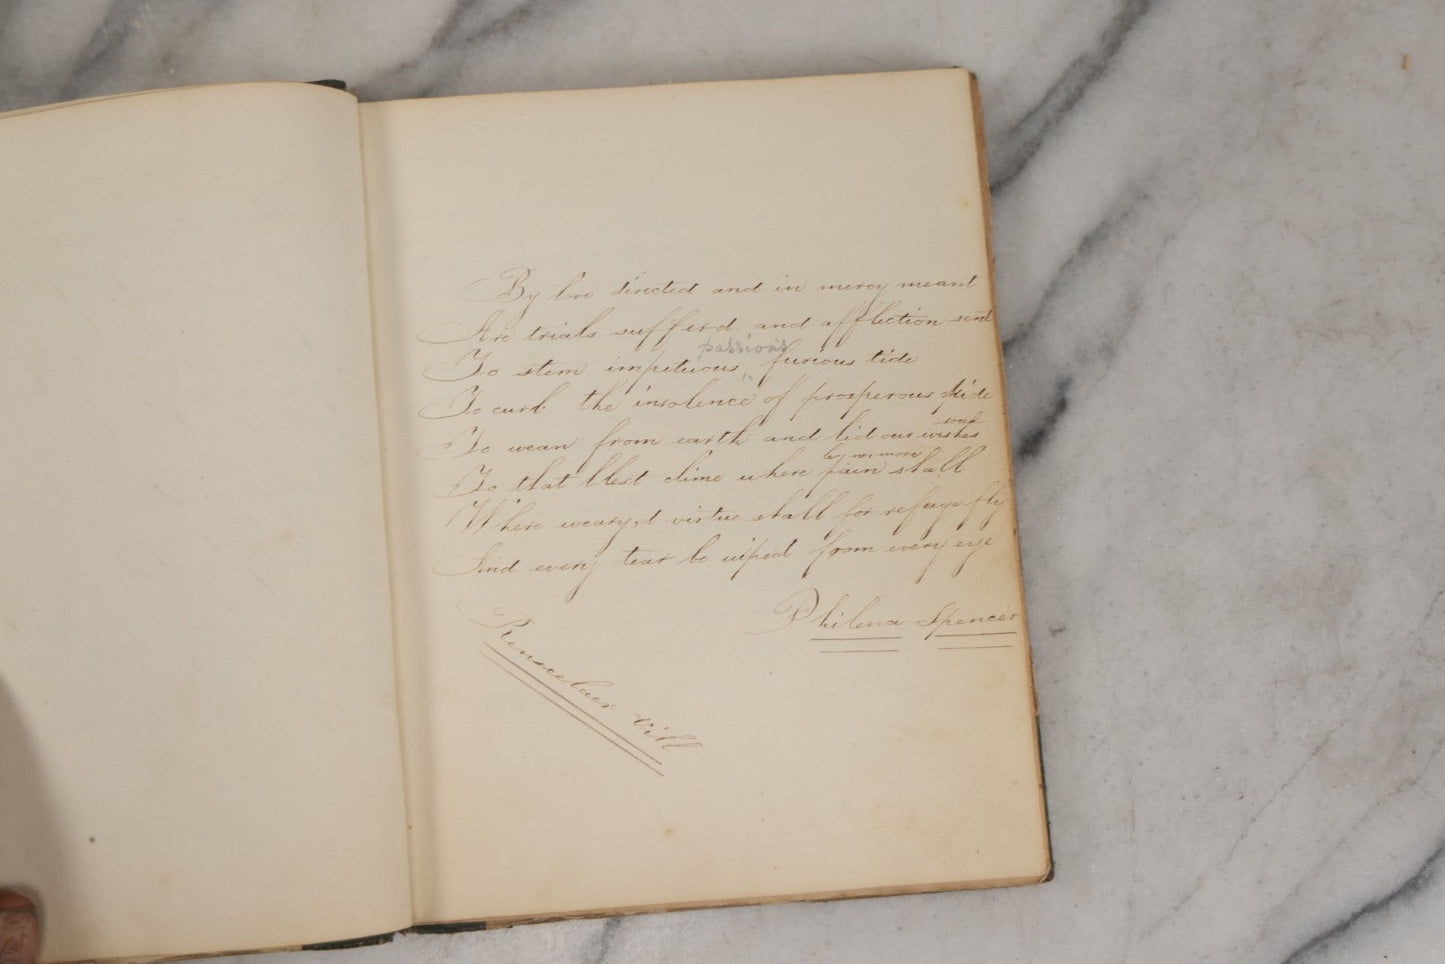 By love directed and in mercy meant
Are trials sufferd and affliction sent
passion's
To stem impetuous furious tide
To curb the insolence of prosperous pride
soar
To wean from earth and bid our wishes
be no more
To that blest clime where pain shall
Where weary,d virtue shall for refuge fly
And every tear be wiped from every eye
Philena Spencer
Rensselaer Vill